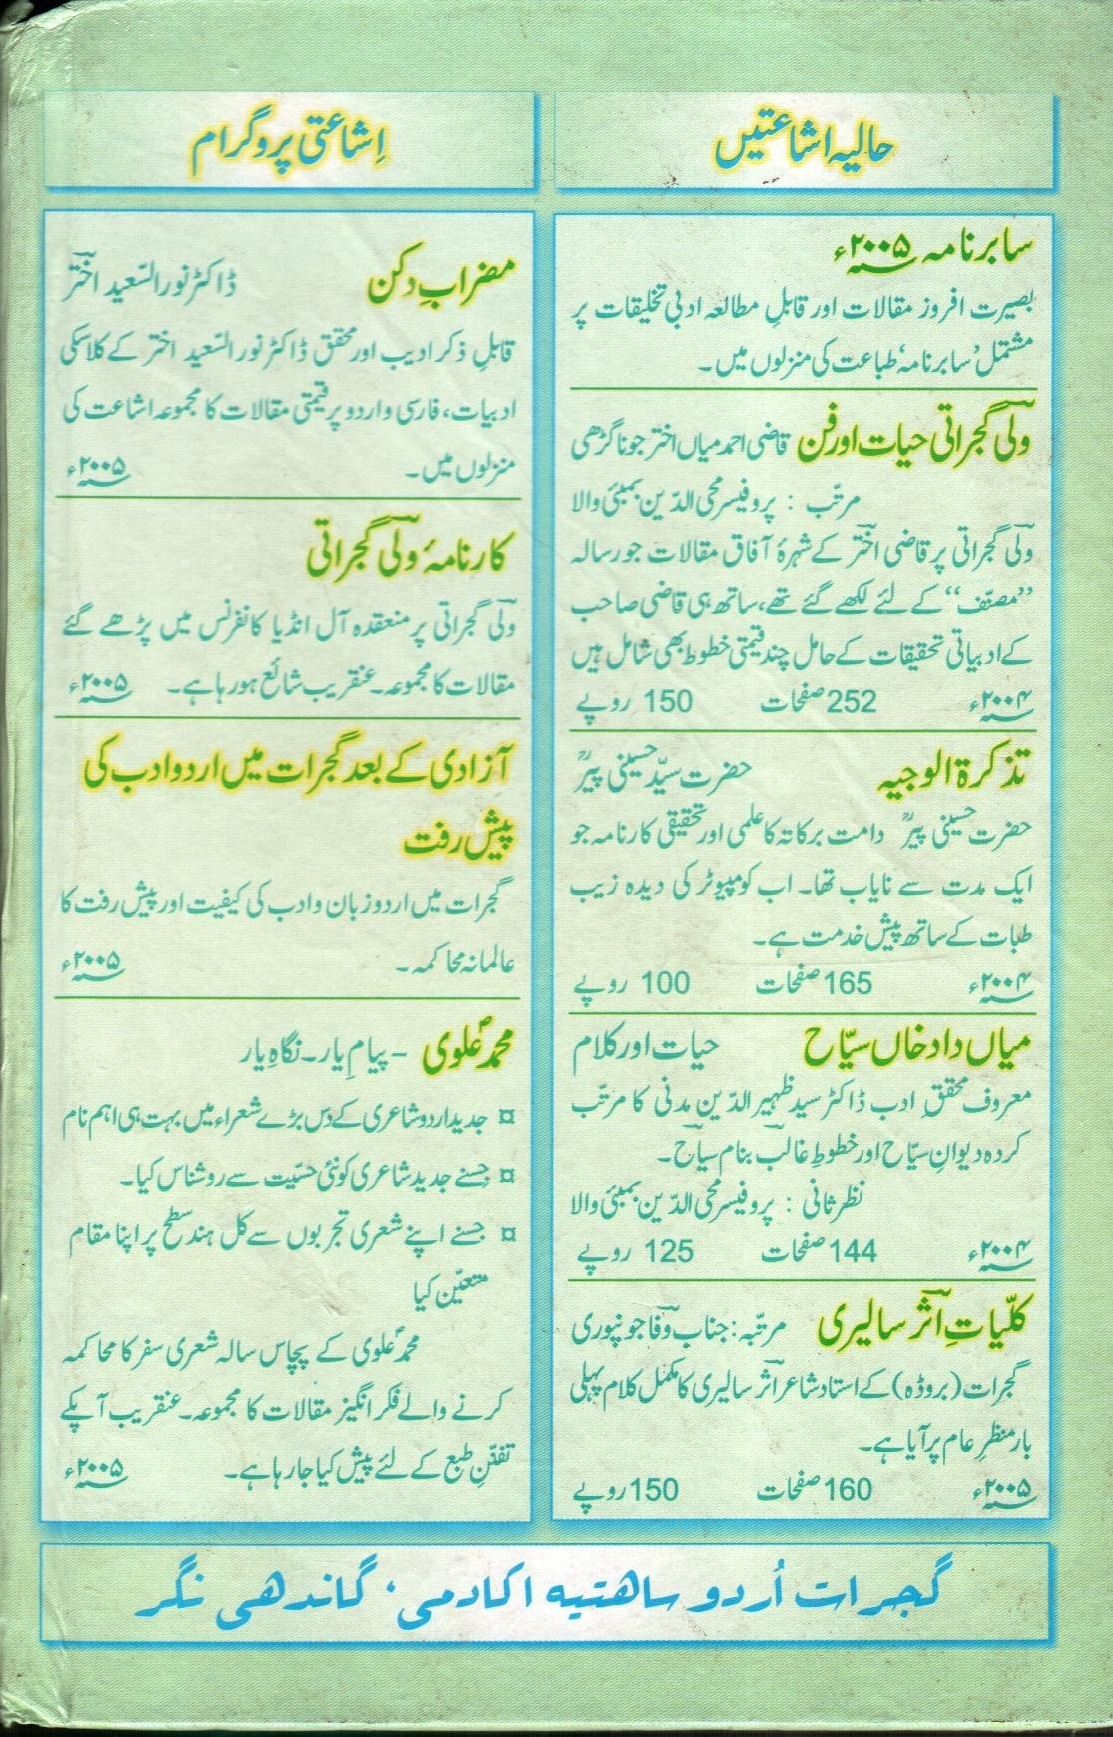 حالیہ اشاعتیں
سابرنامہ ۲۰۰۵ء
بصیرت افروز مقالات اور قابلِ مطالعہ ادبی تخلیقات پر
مشتمل 'سابرنامہ' طباعت کی منزلوں میں۔
ولی گجراتی حیات اور فن قاضی احمد میاں اختر جوناگڑھی
مرتب : پروفیسر محی الدین بمبئی والا
ولی گجراتی پر قاضی اختر کے شہرۂ آفاق مقالات جو رسالہ
”مصنف“ کے لئے لکھے گئے تھے، ساتھ ہی قاضی صاحب
کے ادبیاتی تحقیقات کے حامل چند قیمتی خطوط بھی شامل ہیں
۲۰۰۴ء 252 صفحات 150 روپے
تذکرۃ الوجیہ حضرت سید حسینی پیرؒ
حضرت حسینی پیرؒ دامت برکاتہ کا علمی اور تحقیقی کارنامہ جو
ایک مدت سے نایاب تھا۔ اب کومپیوٹر کی دیدہ زیب
طبات کے ساتھ پیش خدمت ہے۔
۲۰۰۴ء 165 صفحات 100 روپے
میاں دادخاں سیّاح حیات اور کلام
معروف محققِ ادب ڈاکٹر سید ظہیر الدین مدنی کا مرتب
کردہ دیوانِ سیّاح اور خطوطِ غالب بنام سیاح۔
نظر ثانی : پروفیسر محی الدین بمبئی والا
۲۰۰۴ء 144 صفحات 125 روپے
کلّیاتِ آثر سالیری مرتبہ: جناب وفا جونپوری
گجرات (بروڈہ) کے استاد شاعر آثر سالیری کا مکمل کلام پہلی
بار منظرِ عام پر آیا ہے۔
۲۰۰۵ء 160 صفحات 150 روپے
اِشاعتی پروگرام
مضرابِ دکن ڈاکٹر نورالسّعید اختر
قابلِ ذکر ادیب اور محقق ڈاکٹر نورالسّعید اختر کے کلاسکی
ادبیات، فارسی و اردو پر قیمتی مقالات کا مجموعہ اشاعت کی
منزلوں میں۔ ۲۰۰۵ء
کارنامۂ ولی گجراتی
ولی گجراتی پر منعقدہ آل انڈیا کانفرنس میں پڑھے گئے
مقالات کا مجموعہ۔ عنقریب شائع ہو رہا ہے۔ ۲۰۰۵ء
آزادی کے بعد گجرات میں اردو ادب کی
پیش رفت
گجرات میں اردو زبان و ادب کی کیفیت اور پیش رفت کا
عالمانہ محاکمہ۔ ۲۰۰۵ء
محمد علوی - پیامِ یار۔ نگاہِ یار
¤ جدید اردو شاعری کے دس بڑے شعراء میں بہت ہی اہم نام
¤ جسنے جدید شاعری کو نئی حسّیت سے روشناس کیا۔
¤ جسنے اپنے شعری تجربوں سے کل ہند سطح پر اپنا مقام
متعیّن کیا
محمد علوی کے پچاس سالہ شعری سفر کا محاکمہ
کرنے والے فکر انگیز مقالات کا مجموعہ۔ عنقریب آپکے
تفنّنِ طبع کے لئے پیش کیا جا رہا ہے۔ ۲۰۰۵ء
گجرات اُردو ساہتیہ اکادمی، گاندھی نگر